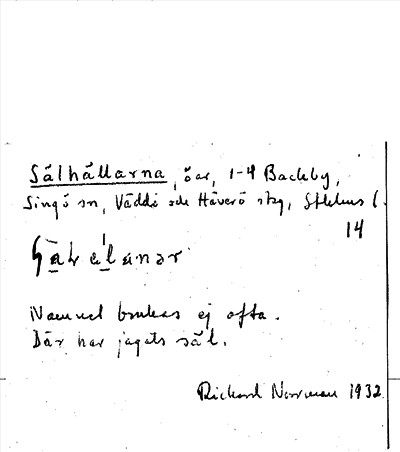 Sälhällarna, öar, 1-4 Backby,
Singö sn, Väddö och Häverö skg, Sthlms l.
14
Namnet brukas ej ofta.
Där har jagats säl.
Rickard Norrman 1932